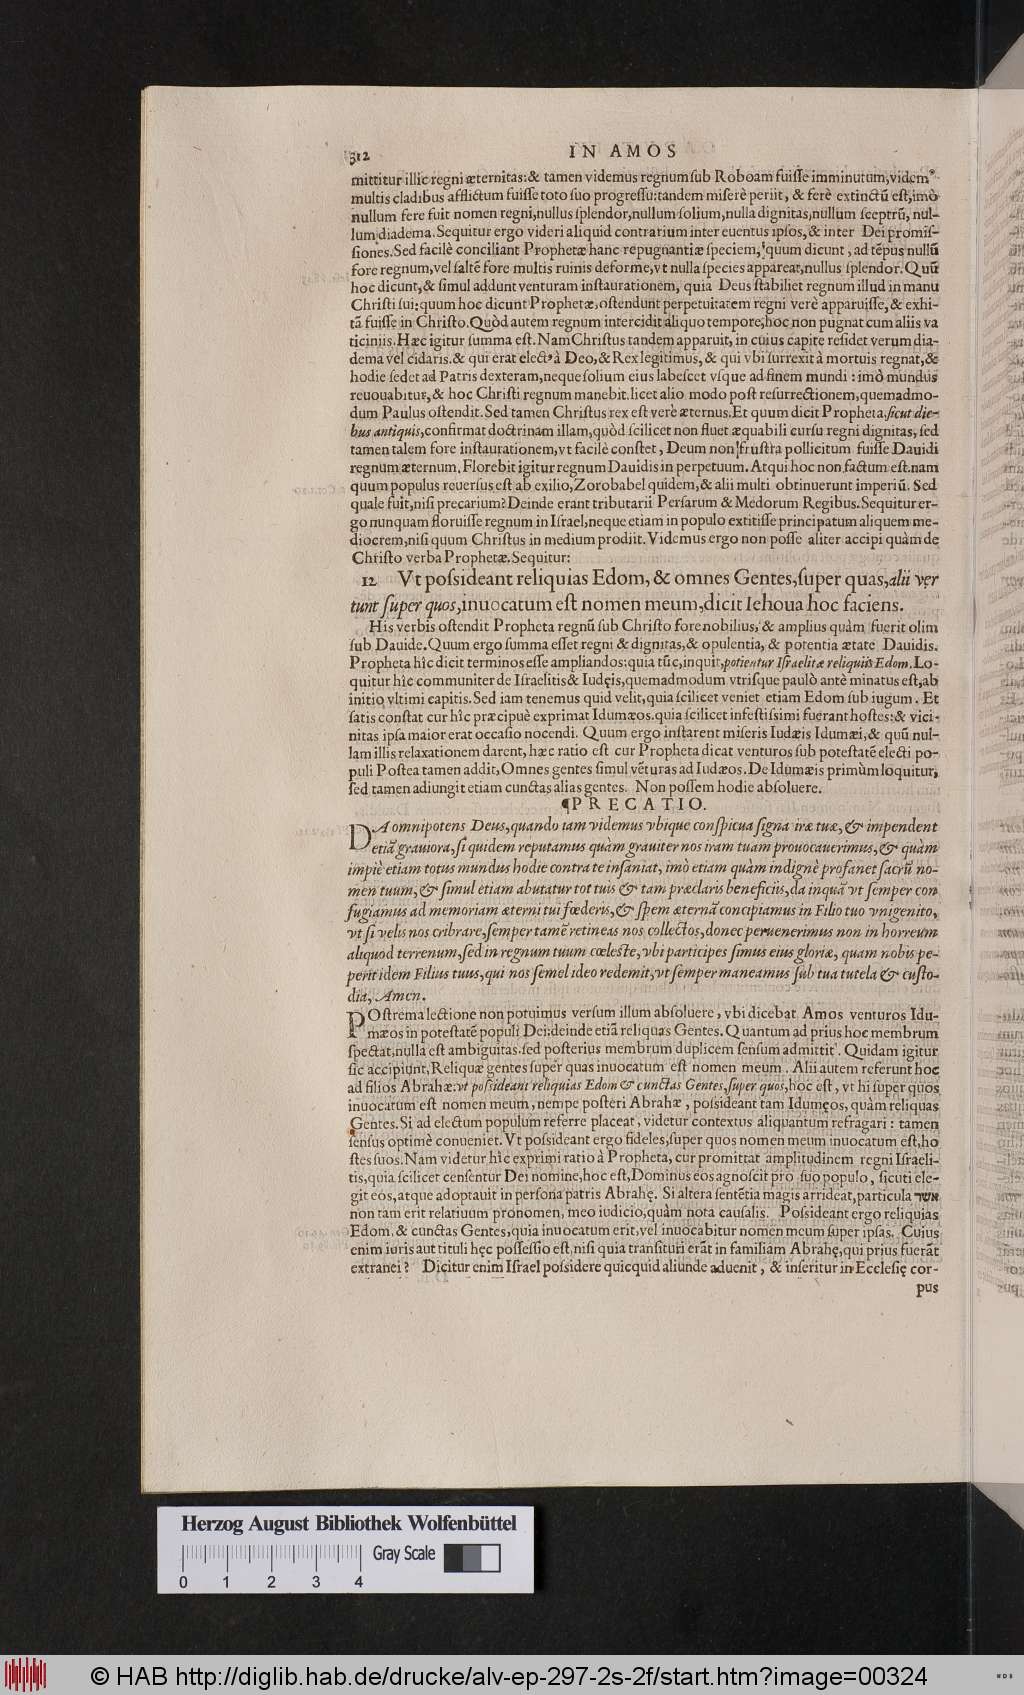 312 IN AMOS
mittitur illic regni æternitas:& tamen videmus regnum ſub Roboam fuiſſe imminutum,videmꝰ
multis cladibus afflictum fuiſſe toto ſuo progreſſu:tandem miſerè periit, & ferè extinctũ eſt,imò
nullum fere fuit nomen regni,nullus ſplendor,nullum ſolium,nulla dignitas,nullum ſceptrũ, nul-
lum diadema.Sequitur ergo videri aliquid contrarium inter euentus ipſos,& inter Dei promiſ-
ſiones.Sed facilè conciliant Prophetæ hanc repugnantiæ ſpeciem, quum dicunt, ad tẽpus nullũ
fore regnum,vel ſaltẽ fore multis ruinis deforme,vt nulla ſpecies appareat,nullus ſplendor.Quũ
hoc dicunt,& ſimul addunt venturam inſtaurationem, quia Deus ſtabiliet regnum illud in manu
Chriſti ſui:quum hoc dicunt Prophetæ,oſtendunt perpetuitatem regni verè apparuiſſe,& exhi-
tã fuiſſe in Chriſto.Quòd autem regnum intercidit aliquo tempore,hoc non pugnat cum aliis va
ticiniis.Hæc igitur ſumma eſt.Nam Chriſtus tandem apparuit,in cuius capite reſidet verum dia-
dema vel cidaris.& qui erat electꝰ à Deo,& Rex legitimus,& qui vbi ſurrexit à mortuis regnat,&
hodie ſedet ad Patris dexteram,neque ſolium eius labeſcet vſque ad finem mundi : imò mundus
reuouabitur,& hoc Chriſti regnum manebit.licet alio modo poſt reſurrectionem,quemadmo-
dum Paulus oſtendit.Sed tamen Chriſtus rex eſt verè æternus.Et quum dicit Propheta,ſicut die-
bus antiquis,confirmat doctrinam illam,quòd ſcilicet non fluet æquabili curſu regni dignitas,ſed
tamen talem fore inſtaurationem,vt facilè conſtet, Deum non fruſtra pollicitum fuiſſe Dauidi
regnum æternum. Florebit igitur regnum Dauidis in perpetuum. Atqui hoc non factum eſt.nam
quum populus reuerſus eſt ab exilio,Zorobabel quidem,& alii multi obtinuerunt imperiũ. Sed
quale fuit,niſi precarium?Deinde erant tributarii Perſarum & Medorum Regibus.Sequitur er-
go nunquam floruiſſe regnum in Iſrael,neque etiam in populo extitiſſe principatum aliquem me-
diocrem,niſi quum Chriſtus in medium prodiit.Videmus ergo non poſſe aliter accipi quàm de
Chriſto verba Prophetæ.Sequitur:
12 Vt poſsideant reliquias Edom,& omnes Gentes,ſuper quas,alii ver
tunt ſuper quos,inuocatum eſt nomen meum,dicit Iehoua hoc faciens.
His verbis oſtendit Propheta regnũ ſub Chriſto fore nobilius, & amplius quàm fuerit olim
ſub Dauide.Quum ergo ſumma eſſet regni & dignitas,& opulentia, & potentia ætate Dauidis.
Propheta hîc dicit terminos eſſe ampliandos:quia tũc,inquit,potientur Iſraelitæ reliquiis Edom.Lo-
quitur hîc communiter de Iſraelitis& Iudęis,quemadmodum vtriſque paulò antè minatus eſt,ab
initio vltimi capitis.Sed iam tenemus quid velit,quia ſcilicet veniet etiam Edom ſub iugum. Et
ſatis conſtat cur hîc præcipuè exprimat Idumæos.quia ſcilicet infeſtiſsimi fuerant hoſtes:& vici-
nitas ipſa maior erat occaſio nocendi. Quum ergo inſtarent miſeris Iudæis Idumæi,& quũ nul-
lam illis relaxationem darent, hæc ratio eſt cur Propheta dicat venturos ſub poteſtatẽ electi po-
puli Poſtea tamen addit,Omnes gentes ſimul vẽturas ad Iudæos.De Idumæis primùm loquitur,
ſed tamen adiungit etiam cunctas alias gentes. Non poſſem hodie abſoluere.
¶PRECATIO.
DA omnipotens Deus,quando tam videmus vbique conſpicua ſigna iræ tuæ, & impendent
etiã grauiora,ſi quidem reputamus quàm grauiter nos iram tuam prouocauerimus,& quàm
impiè etiam totus mundus hodie contra te inſaniat, imò etiam quàm indignè profanet ſacrũ no-
men tuum, & ſimul etiam abutatur tot tuis & tam præclaris beneficiis,da inquã vt ſemper con
fugiamus ad memoriam æterni tui fœderis,& ſpem æternã concipiamus in Filio tuo vnigenito,
vt ſi velis nos cribrare,ſemper tamẽ retineas nos collectos,donec peruenerimus non in horreum
aliquod terrenum,ſed in regnum tuum cœleſte,vbi participes ſimus eius gloriæ, quam nobis pe-
perit idem Filius tuus,qui nos ſemel ideo redemit,vt ſemper maneamus ſub tua tutela & cuſto-
dia, Amen.
POſtrema lectione non potuimus verſum illum abſoluere, vbi dicebat Amos venturos Idu-
mæos in poteſtatẽ populi Dei:deinde etiã reliquas Gentes.Quantum ad prius hoc membrum
ſpectat,nulla eſt ambiguitas.ſed poſterius membrum duplicem ſenſum admittit. Quidam igitur
ſic accipiunt,Reliquæ gentes ſuper quas inuocatum eſt nomen meum. Alii autem referunt hoc
ad filios Abrahæ:vt poſsideant reliquias Edom & cunctas Gentes,ſuper quos,hoc eſt, vt hi ſuper quos
inuocatum eſt nomen meum, nempe poſteri Abrahæ, poſsideant tam Idumęos, quàm reliquas
Gentes.Si ad electum populum referre placeat, videtur contextus aliquantum refragari : tamen
ſenſus optimè conueniet.Vt poſsideant ergo fideles,ſuper quos nomen meum inuocatum eſt,ho
ſtes ſuos.Nam videtur hîc exprimi ratio à Propheta, cur promittat amplitudinem regni Iſraeli-
tis,quia ſcilicet cenſentur Dei nomine,hoc eſt,Dominus eos agnoſcit pro ſuo populo, ſicuti ele-
git eos,atque adoptauit in perſona patris Abrahę. Si altera ſentẽtia magis arrideat,particula אשר
non tam erit relatiuum pronomen, meo iudicio,quàm nota cauſalis. Poſsideant ergo reliquias
Edom. & cunctas Gentes,quia inuocatum erit,vel inuocabitur nomen meum ſuper ipſas. Cuius
enim iuris aut tituli hęc poſſeſsio eſt,niſi quia tranſituri erãt in familiam Abrahę,qui prius fuerãt
extranei? Dicitur enim Iſrael poſsidere quicquid aliunde aduenit, & inſeritur in Eccleſię cor-
pus
Herzog August Bibliothek Wolfenbüttel
Gray Scale
0 1 2 3 4
© HAB http://diglib.hab.de/drucke/alv-ep-297-2s-2f/start.htm?image=00324